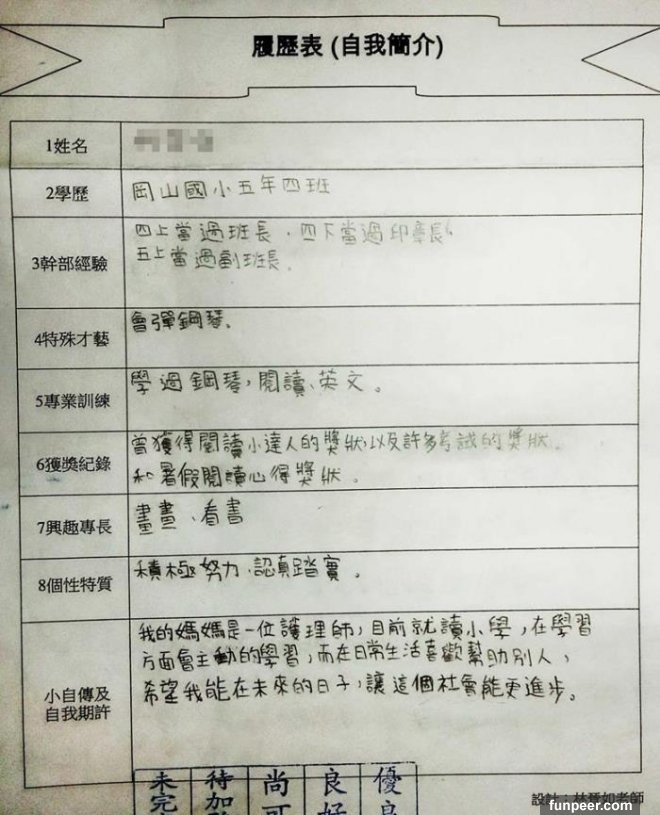 履歷表 (自我簡介)
1姓名
2學歷
岡山國小五年四班
3幹部經驗
四上當過班長、四下當過印章長
五上當過副班長。
4特殊才藝
會彈鋼琴。
5專業訓練
學過鋼琴,閱讀、英文。
6獲獎紀錄
曾獲得閱讀小達人的獎狀,以及許多考試的獎狀。
和暑假閱讀心得獎狀。
7興趣專長
畫畫、看書
8個性特質
積極努力、認真踏實。
小自傳及
自我期許
我的媽媽是一位護理師,目前就讀小學,在學習
方面會主動的學習,而在日常生活喜歡幫助別人,
希望我能在未來的日子,讓這個社會能更進步。
未完
待加
尚可
良好
優良
設計:林晉如老師
funpeer.com